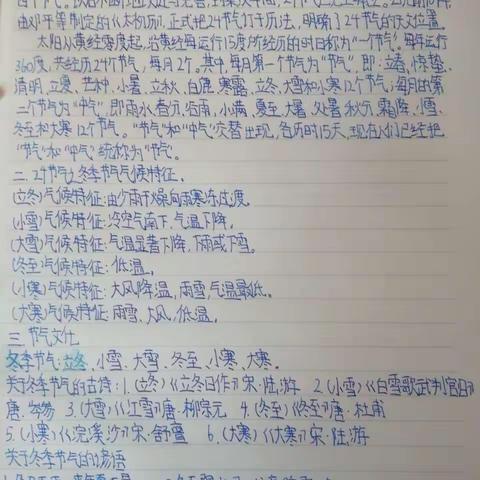 由邓平等制定的《太初历》,正式把24节气订于历法,明确了24节气的天文位置。
太阳从黄经零度起,沿黄经每运行15度所经历的时日称为"一个节气"。每年运行
360度,共经历24个节气,每月2个。其中,每月第一个节气为"节气",即:立春、惊蛰、
清明、立夏、芒种、小暑、立秋、白鹿、寒露、立冬、大雪和小寒12个节气;每月的第
二个节气为"中气",即雨水、春分、谷雨、小满、夏至、大暑、处暑、秋分、霜降、小雪、
冬至和大寒12个节气。"节气"和"中气"交替出现,各历时15天,现在人们已经把
"节气"和"中气"统称为"节气"。
二、24节气之冬季节气气候特征。
(立冬)气候特征:由少雨干燥向雨寒冻过度。
(小雪)气候特征:冷空气南下,气温下降。
(大雪)气候特征:气温显著下降,下雨或下雪。
(冬至)气候特征:低温。
(小寒)气候特征:大风降温,雨雪,气温最低。
(大寒)气候特征:雨雪、大风、低温。
三、节气文化
冬季节气:立冬、小雪、大雪、冬至、小寒、大寒。
关于冬季节气的古诗:1.(立冬)《立冬日作》宋·陆游 2.(小雪)《白雪歌武判官归》
唐·岑参 3.(大雪)《江雪》唐·柳宗元 4.(冬至)《冬至》唐·杜甫
5.(小寒)《浣溪沙》宋·舒亶 6.(大寒)《大寒》宋·陆游
关于冬季节气的谚语